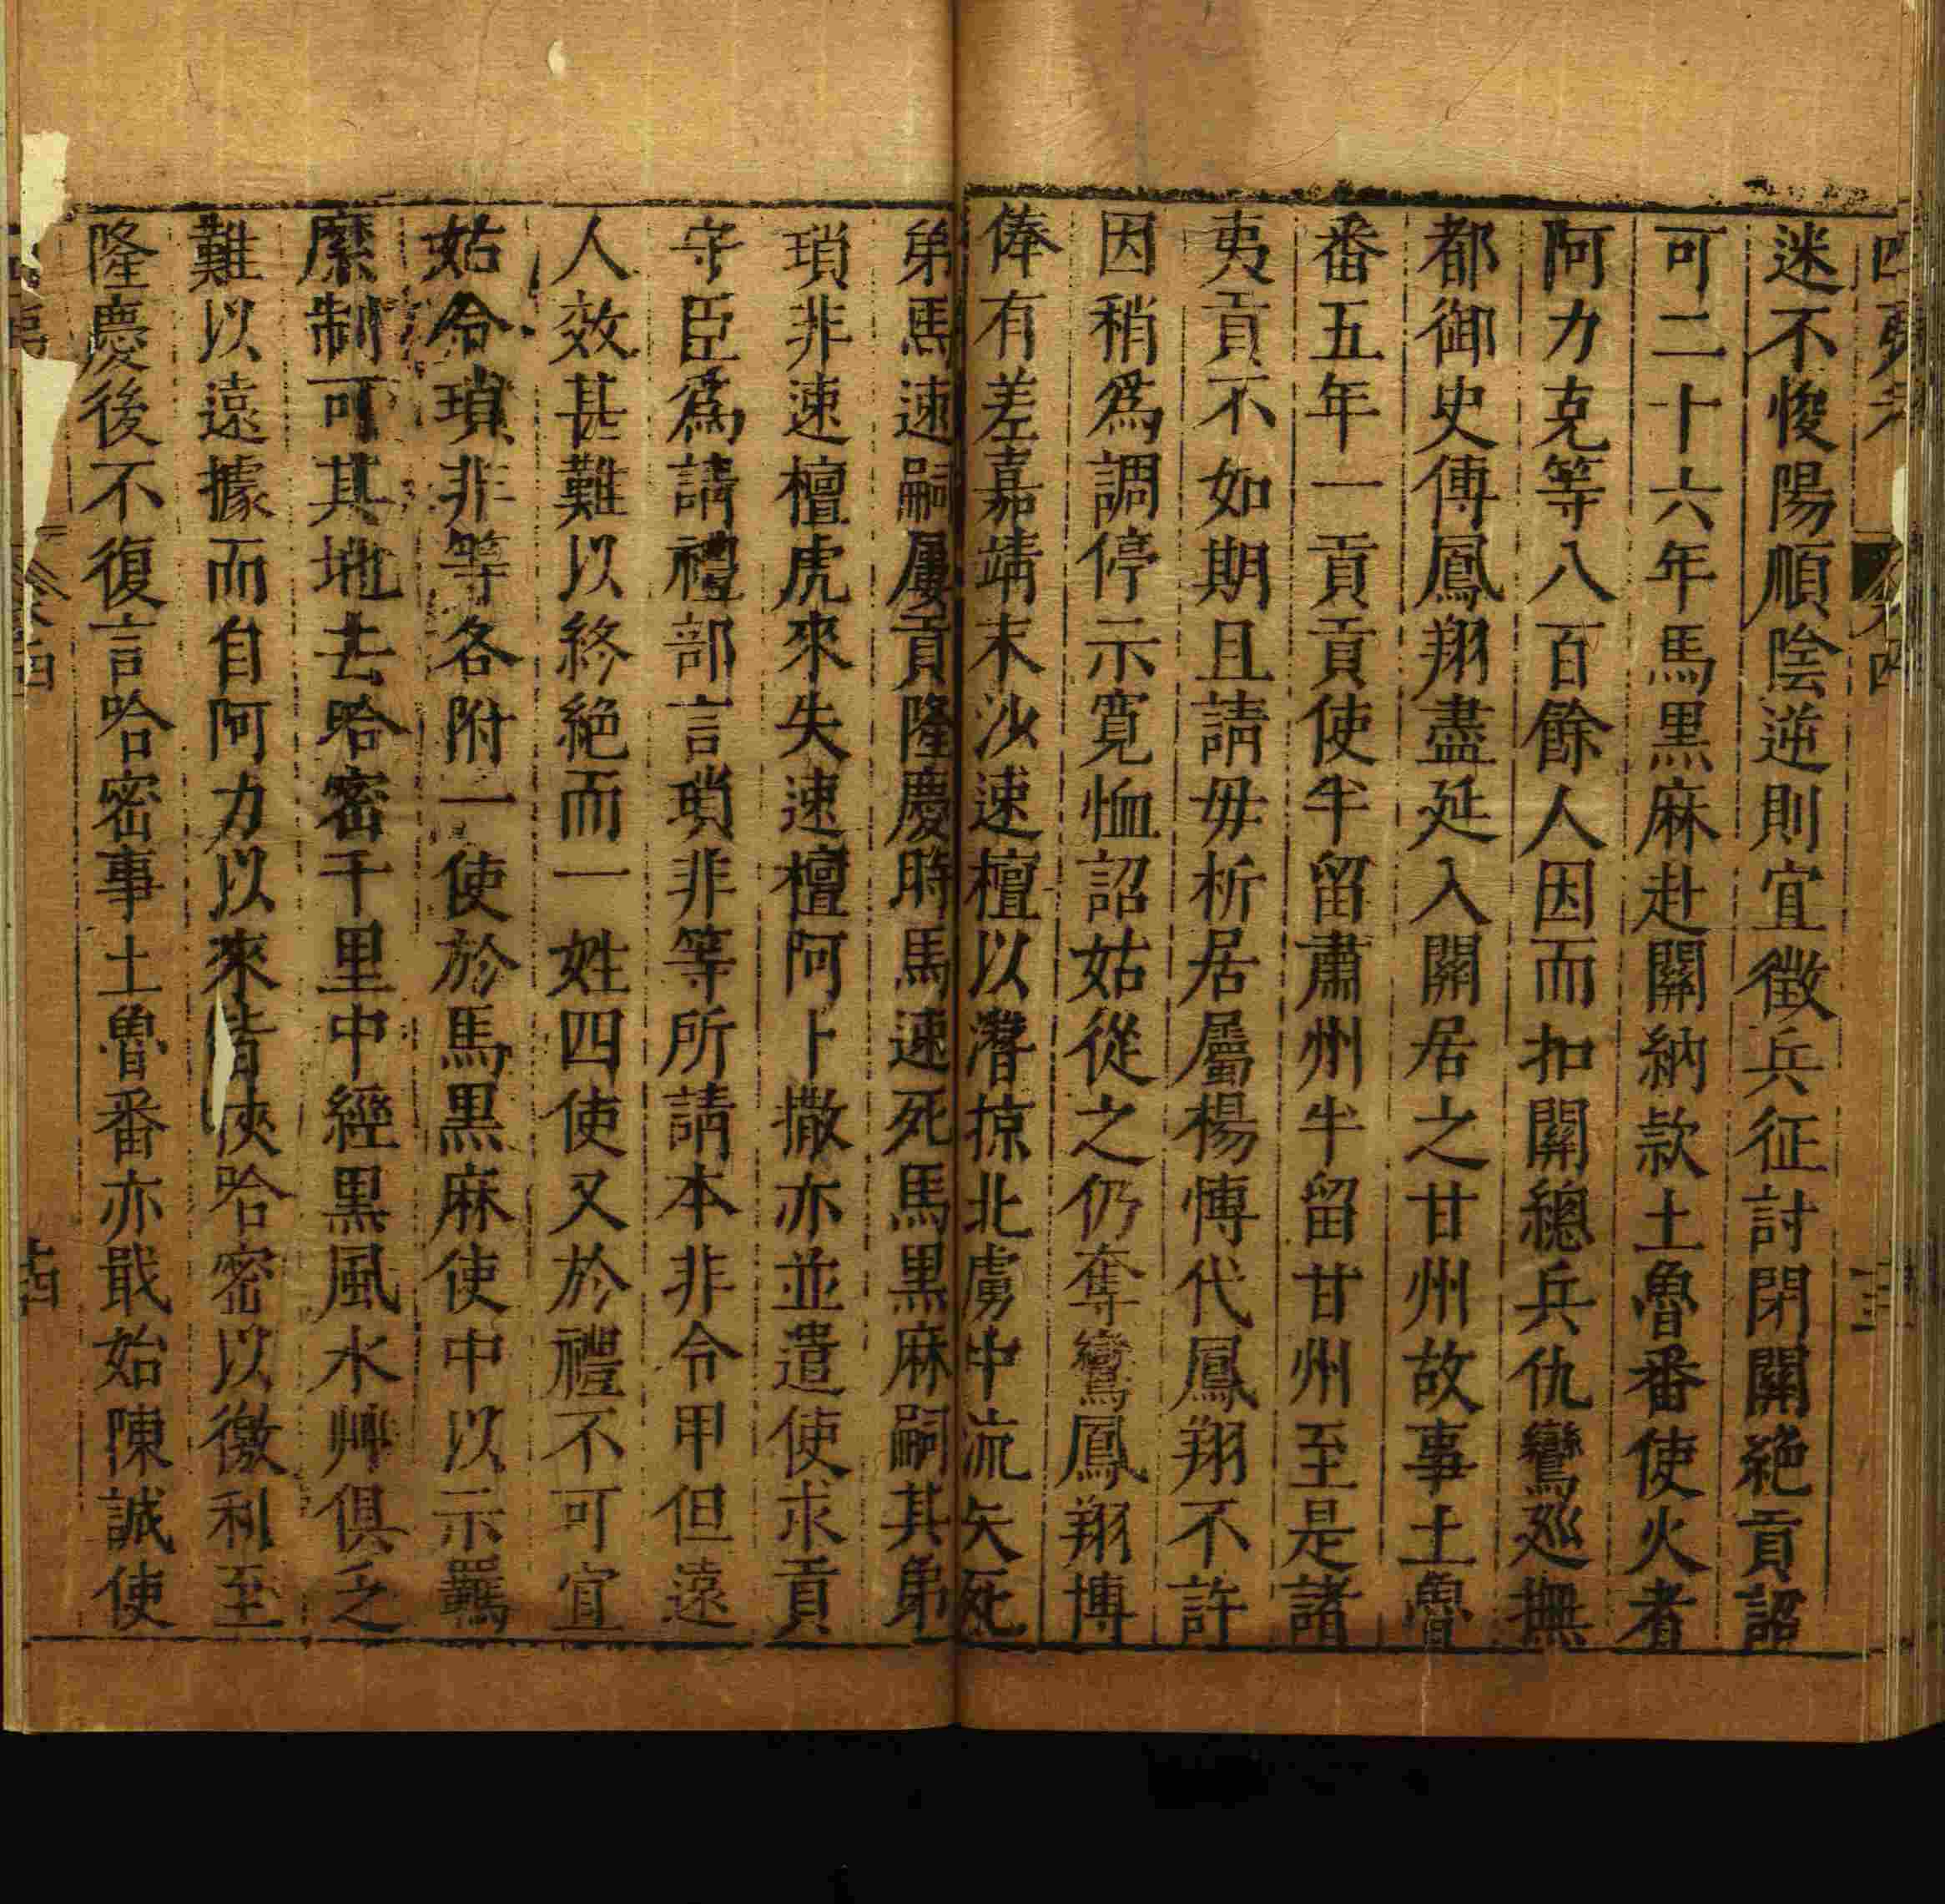 迷不悛陽順陰逆則宜徵兵征討閉關絕貢詔
可二十六年馬黑麻赴關納款土魯番使火者
阿力克等八百餘人因而扣關總兵仇鸞廵撫
都御史傅鳳翔盡延入關居之甘州故事土魯
番五年一貢貢使半留肅州半留甘州至是諸
夷貢不如期且請毋析居屬楊愽代鳳翔不許
因稍爲調停示寬恤詔姑從之仍奪鸞鳳翔博
俸有差嘉靖末沙速檀以潛掠北虜中流矢死
弟馬速嗣屢貢隆慶時馬速死馬黑麻嗣其弟
瑣非速檀虎來失速檀阿卜撒亦並遣使求貢
守臣爲請禮部言瑣非等所請本非令甲但遠
人效甚難以終絕而一姓四使又於禮不可宜
姑令瑣非等各附一使於馬黑麻使中以示羈
縻制可其地去哈密千里中經黑風水艸俱乏
難以遠據而自阿力以來皆挾哈密以徼利至
隆慶後不復言哈密事土魯番亦戢始陳誠使